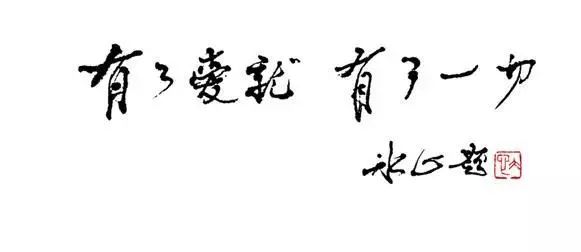 有了愛就 有了一切
冰心题